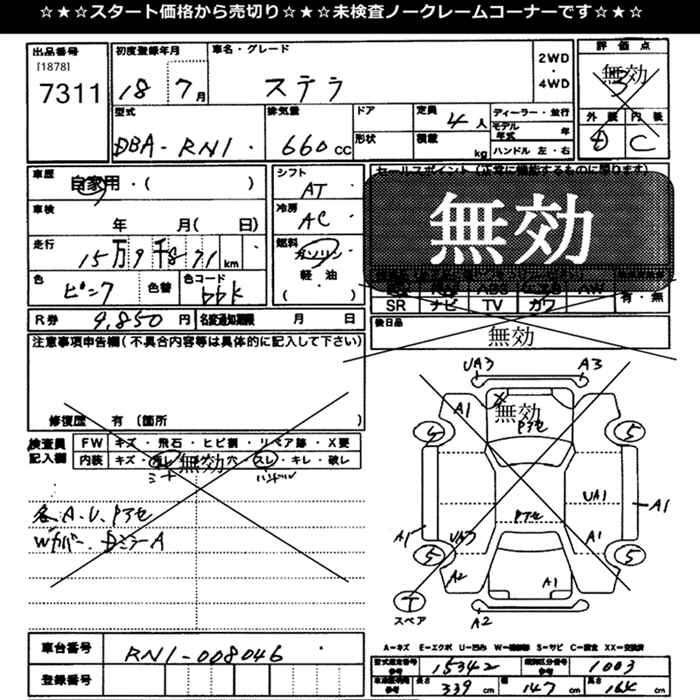 ☆★☆スタート価格から売切り☆★☆未検査ノークレームコーナーです☆★☆
出品番号 初度登録年月 車名・グレード 2WD・4WD 評価点
[1878]
7311 18 7月 ステラ 無効 3
型式 排気量 ドア 定員 4人 ディーラー・並行 外装 内装
DBA-RN1 660cc 形状 積載 kg モデル年式 年 D C
ハンドル 左・右
車歴 自家用・( ) シフト AT セールスポイント(正常に機能するものに限ります)
車検 年 月( 日) 冷房 AC 無効
走行 15万9千871km 燃料 ガソリン
色 ピンク 色替 色コード bbk 軽油 ( ) SR ナビ TV カワ 有・無
R券 9,850円 名変通知期限 月 日 後日品 無効
注意事項申告欄(不具合内容等は具体的に記入して下さい)
修復歴 有(箇所 )
検査員記入欄 FW キズ・飛石・ヒビ割・リペア跡・X要
内装 キズ・汚レ・穴・スレ・キレ・破レ
無効
シート ハンドル
各A.U.Pアセ
Wカバー.DミラーA
UA3 A3
A1 無効 Pアセ
4 5
UA1 A1
Pアセ
A1 UA3 A1
5 5
A2 A1
T
スペア A2
A-キズ E-エクボ U-凹み W-補修跡 S-サビ C-腐食 XX-交換済
車台番号 RN1-008046 型式指定番号 参考 15342 類別区分番号 参考 1003
登録番号 長さ 339cm 幅 147cm 高さ 164cm